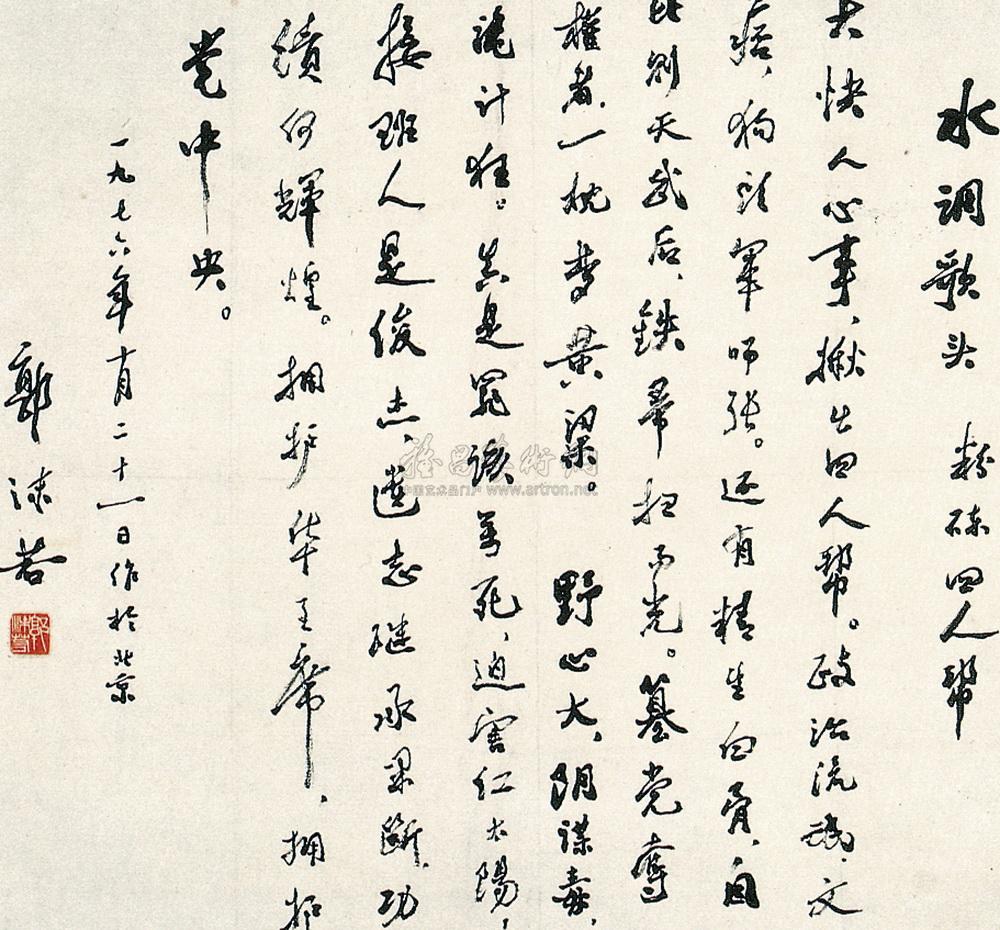 水调歌头 粉碎四人帮
大快人心事、揪出四人帮。政治流氓、文
痞，狗头军师张。还有精生白骨，自
比则天武后，铁帚扫而光。篡党夺
权者，一枕梦黄粱。 野心大，阴谋毒，
诡计狂。真是罪该万死，迫害红太阳，
接班人是俊杰，遗志继承果断，功
绩何辉煌。拥护华主席，拥护
党中央。
一九七六年十月二十一日作於北京
郭沫若
郭沫若
中国艺术品门户 www.artron.net